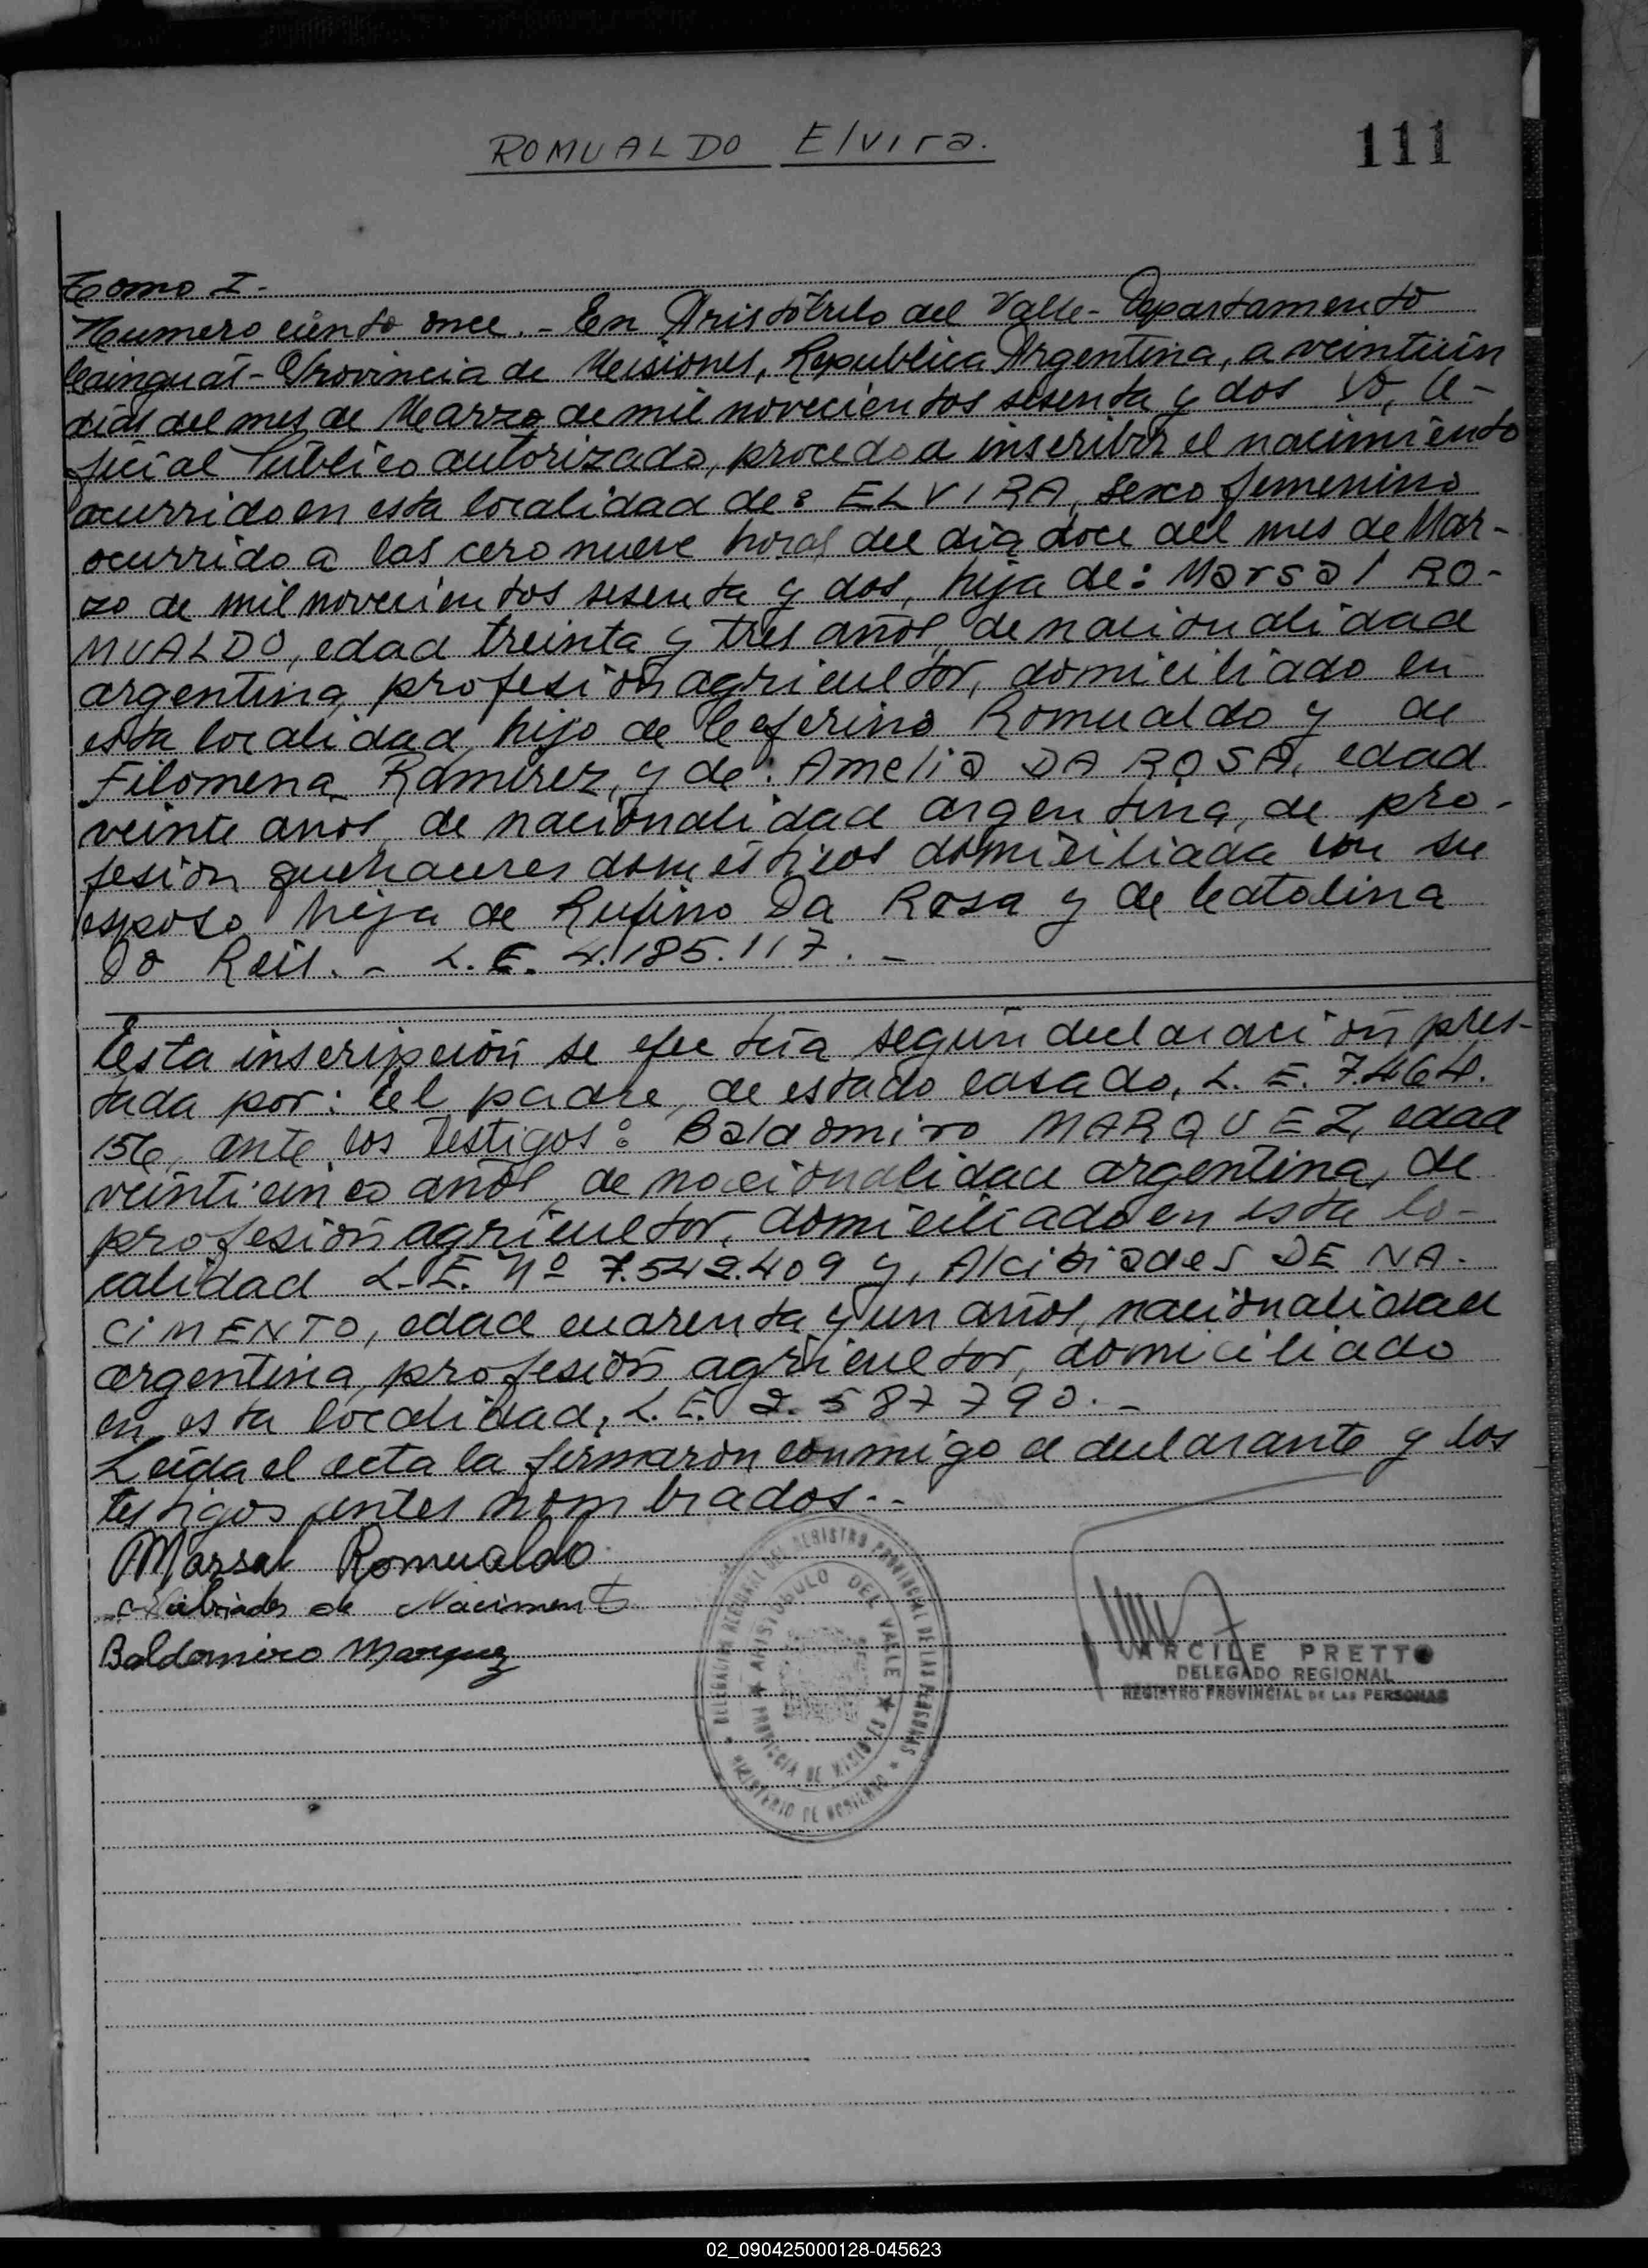 ROMUALDO Elvira.
111
Tomo I.-
Numero ciento once.- En Aristóbulo del Valle- Departamento
Cainguás- Provincia de Misiones, Republica Argentina, a veintiún
días del mes de Marzo de mil novecientos sesenta y dos Yo, O-
ficial Público autorizado, procedo a inscribir el nacimiento
ocurrido en esta localidad de: ELVIRA, sexo femenino
ocurrido a las cero nueve horas del día doce del mes de Mar-
zo de mil novecientos sesenta y dos, hija de: Marsal RO-
MUALDO, edad treinta y tres años, de nacionalidad
argentina, profesión agricultor, domiciliado en
esta localidad, hijo de Ceferino Romualdo y de
Filomena Ramirez, y de: Amelia DA ROSA, edad
veinte años, de nacionalidad argentina, de pro-
fesión quehaceres domésticos domiciliada con su
esposo, hija de Rufino Da Rosa y de Catolina
Do Reis.- L.C. 4.185.117.-
Esta inscripción se efectúa según declaración pres-
tada por: El padre, de estado casado, L.E. 7.464.
156, ante los testigos: Baldomiro MARQUEZ, edad
veinticinco años, de nacionalidad argentina, de
profesión agricultor, domiciliado en esta lo-
calidad L.E. Nº 7.542.409 y, Alcibiades DE NA-
CIMENTO, edad cuarenta y un años, nacionalidad
argentina, profesión agricultor, domiciliado
en esta localidad, L.E. 2.587790.-
Leída el acta la firmaron conmigo el declarante y los
testigos antes nombrados.-
Marsal Romualdo
Alcibiades de Naciment
Baldomiro Marquez
DELEGACIÓN REGIONAL DEL REGISTRO PROVINCIAL DE LAS PERSONAS
ARISTOBULO DEL VALLE
PROVINCIA DE MISIONES
MINISTERIO DE GOBIERNO
ARCILE PRETTO
DELEGADO REGIONAL
REGISTRO PROVINCIAL DE LAS PERSONAS
02_090425000128-045623